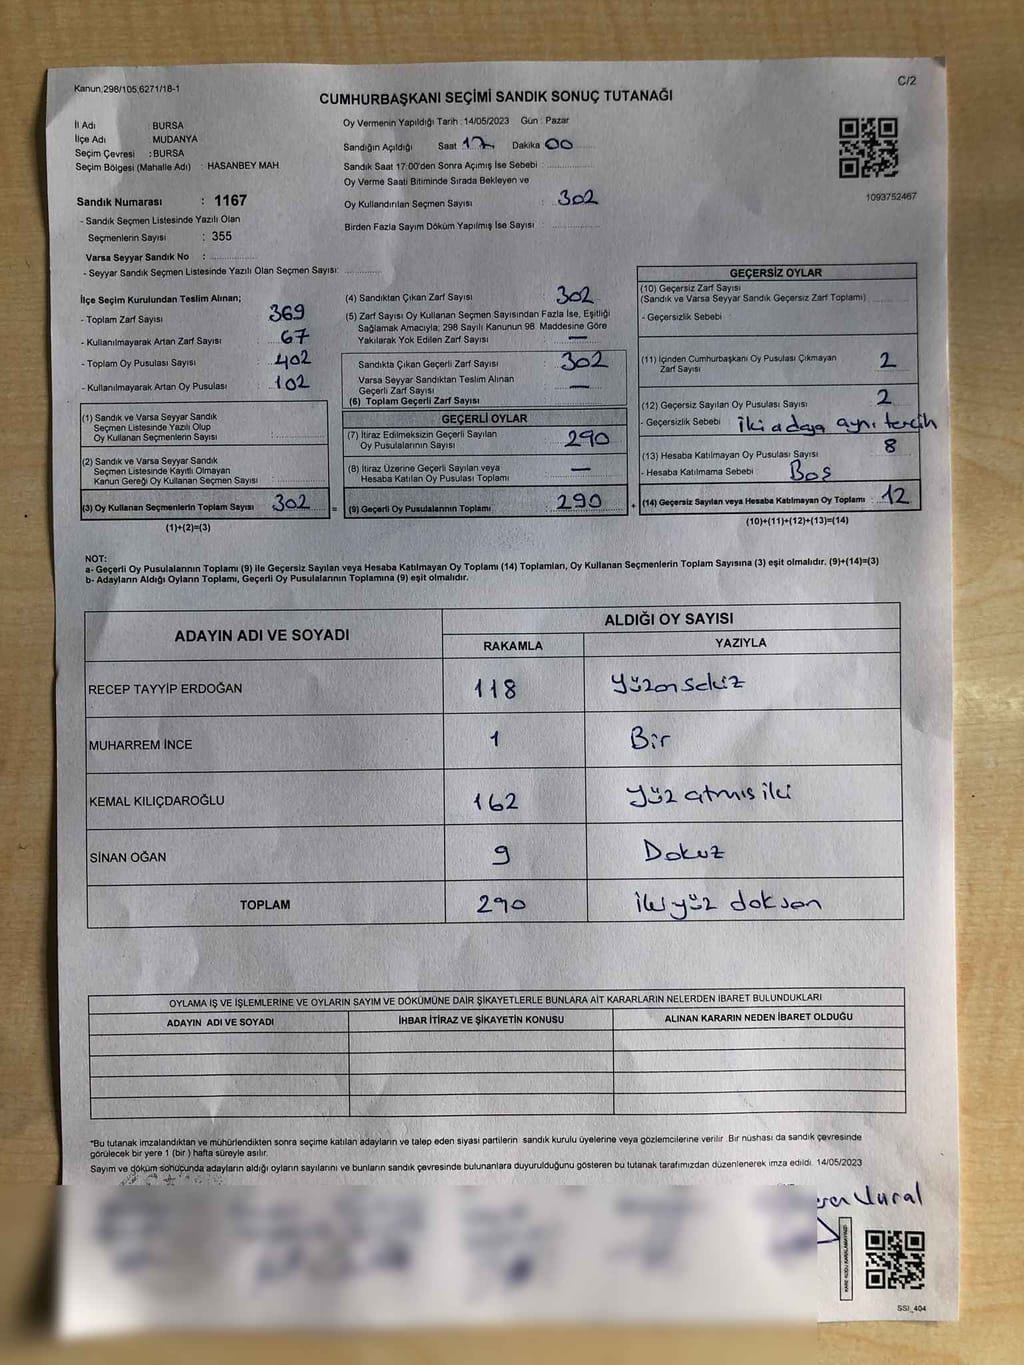 Kanun,298/105,6271/18-1
C/2
CUMHURBAŞKANI SEÇİMİ SANDIK SONUÇ TUTANAĞI
İl Adı : BURSA
İlçe Adı : MUDANYA
Seçim Çevresi : BURSA
Seçim Bölgesi (Mahalle Adı) : HASANBEY MAH
Sandık Numarası : 1167
- Sandık Seçmen Listesinde Yazılı Olan
Seçmenlerin Sayısı : 355
Varsa Seyyar Sandık No :
- Seyyar Sandık Seçmen Listesinde Yazılı Olan Seçmen Sayısı:
Oy Vermenin Yapıldığı Tarih : 14/05/2023 Gün : Pazar
Sandığın Açıldığı Saat 17 Dakika 00
Sandık Saat 17:00'den Sonra Açımış İse Sebebi :
Oy Verme Saati Bitiminde Sırada Bekleyen ve
Oy Kullandırılan Seçmen Sayısı : 302
Birden Fazla Sayım Döküm Yapılmış İse Sayısı :
1093752467
İlçe Seçim Kurulundan Teslim Alınan;
- Toplam Zarf Sayısı : 369
- Kullanılmayarak Artan Zarf Sayısı : 67
- Toplam Oy Pusulası Sayısı : 402
- Kullanılmayarak Artan Oy Pusulası : 102
(1) Sandık ve Varsa Seyyar Sandık
Seçmen Listesinde Yazılı Olup
Oy Kullanan Seçmenlerin Sayısı :
(2) Sandık ve Varsa Seyyar Sandık
Seçmen Listesinde Kayıtlı Olmayan
Kanun Gereği Oy Kullanan Seçmen Sayısı :
(3) Oy Kullanan Seçmenlerin Toplam Sayısı : 302
(1)+(2)=(3)
=
(4) Sandıktan Çıkan Zarf Sayısı : 302
(5) Zarf Sayısı Oy Kullanan Seçmen Sayısından Fazla İse, Eşitliği
Sağlamak Amacıyla; 298 Sayılı Kanunun 98 Maddesine Göre
Yakılarak Yok Edilen Zarf Sayısı : —
Sandıkta Çıkan Geçerli Zarf Sayısı : 302
Varsa Seyyar Sandıktan Teslim Alınan
Geçerli Zarf Sayısı : —
(6) Toplam Geçerli Zarf Sayısı
GEÇERLİ OYLAR
(7) İtiraz Edilmeksizin Geçerli Sayılan
Oy Pusulalarının Sayısı : 290
(8) İtiraz Üzerine Geçerli Sayılan veya
Hesaba Katılan Oy Pusulası Toplamı : —
(9) Geçerli Oy Pusulalarının Toplamı : 290
+
GEÇERSİZ OYLAR
(10) Geçersiz Zarf Sayısı
(Sandık ve Varsa Seyyar Sandık Geçersiz Zarf Toplamı)
- Geçersizlik Sebebi :
(11) İçinden Cumhurbaşkanı Oy Pusulası Çıkmayan
Zarf Sayısı : 2
(12) Geçersiz Sayılan Oy Pusulası Sayısı : 2
- Geçersizlik Sebebi : İki adaya aynı tercih
(13) Hesaba Katılmayan Oy Pusulası Sayısı : 8
- Hesaba Katılmama Sebebi : Boş
(14) Geçersiz Sayılan veya Hesaba Katılmayan Oy Toplamı : 12
(10)+(11)+(12)+(13)=(14)
NOT:
a- Geçerli Oy Pusulalarının Toplamı (9) ile Geçersiz Sayılan veya Hesaba Katılmayan Oy Toplamı (14) Toplamları, Oy Kullanan Seçmenlerin Toplam Sayısına (3) eşit olmalıdır. (9)+(14)=(3)
b- Adayların Aldığı Oyların Toplamı, Geçerli Oy Pusulalarının Toplamına (9) eşit olmalıdır.
ADAYIN ADI VE SOYADI
ALDIĞI OY SAYISI
RAKAMLA YAZIYLA
RECEP TAYYİP ERDOĞAN 118 Yüzonsekiz
MUHARREM İNCE 1 Bir
KEMAL KILIÇDAROĞLU 162 Yüz atmış iki
SİNAN OĞAN 9 Dokuz
TOPLAM 290 iki yüz doksan
OYLAMA İŞ VE İŞLEMLERİNE VE OYLARIN SAYIM VE DÖKÜMÜNE DAİR ŞİKAYETLERLE BUNLARA AİT KARARLARIN NELERDEN İBARET BULUNDUKLARI
ADAYIN ADI VE SOYADI İHBAR İTİRAZ VE ŞİKAYETİN KONUSU ALINAN KARARIN NEDEN İBARET OLDUĞU
*Bu tutanak imzalandıktan ve mühürlendikten sonra seçime katılan adayların ve talep eden siyasi partilerin sandık kurulu üyelerine veya gözlemcilerine verilir. Bir nüshası da sandık çevresinde
görülecek bir yere 1 (bir ) hafta süreyle asılır.
Sayım ve döküm sonucunda adayların aldığı oyların sayılarını ve bunların sandık çevresinde bulunanlara duyurulduğunu gösteren bu tutanak tarafımızdan düzenlenerek imza edildi. 14/05/2023
Vural
KARE KODU KARALAMAYINIZ!
SSİ_404